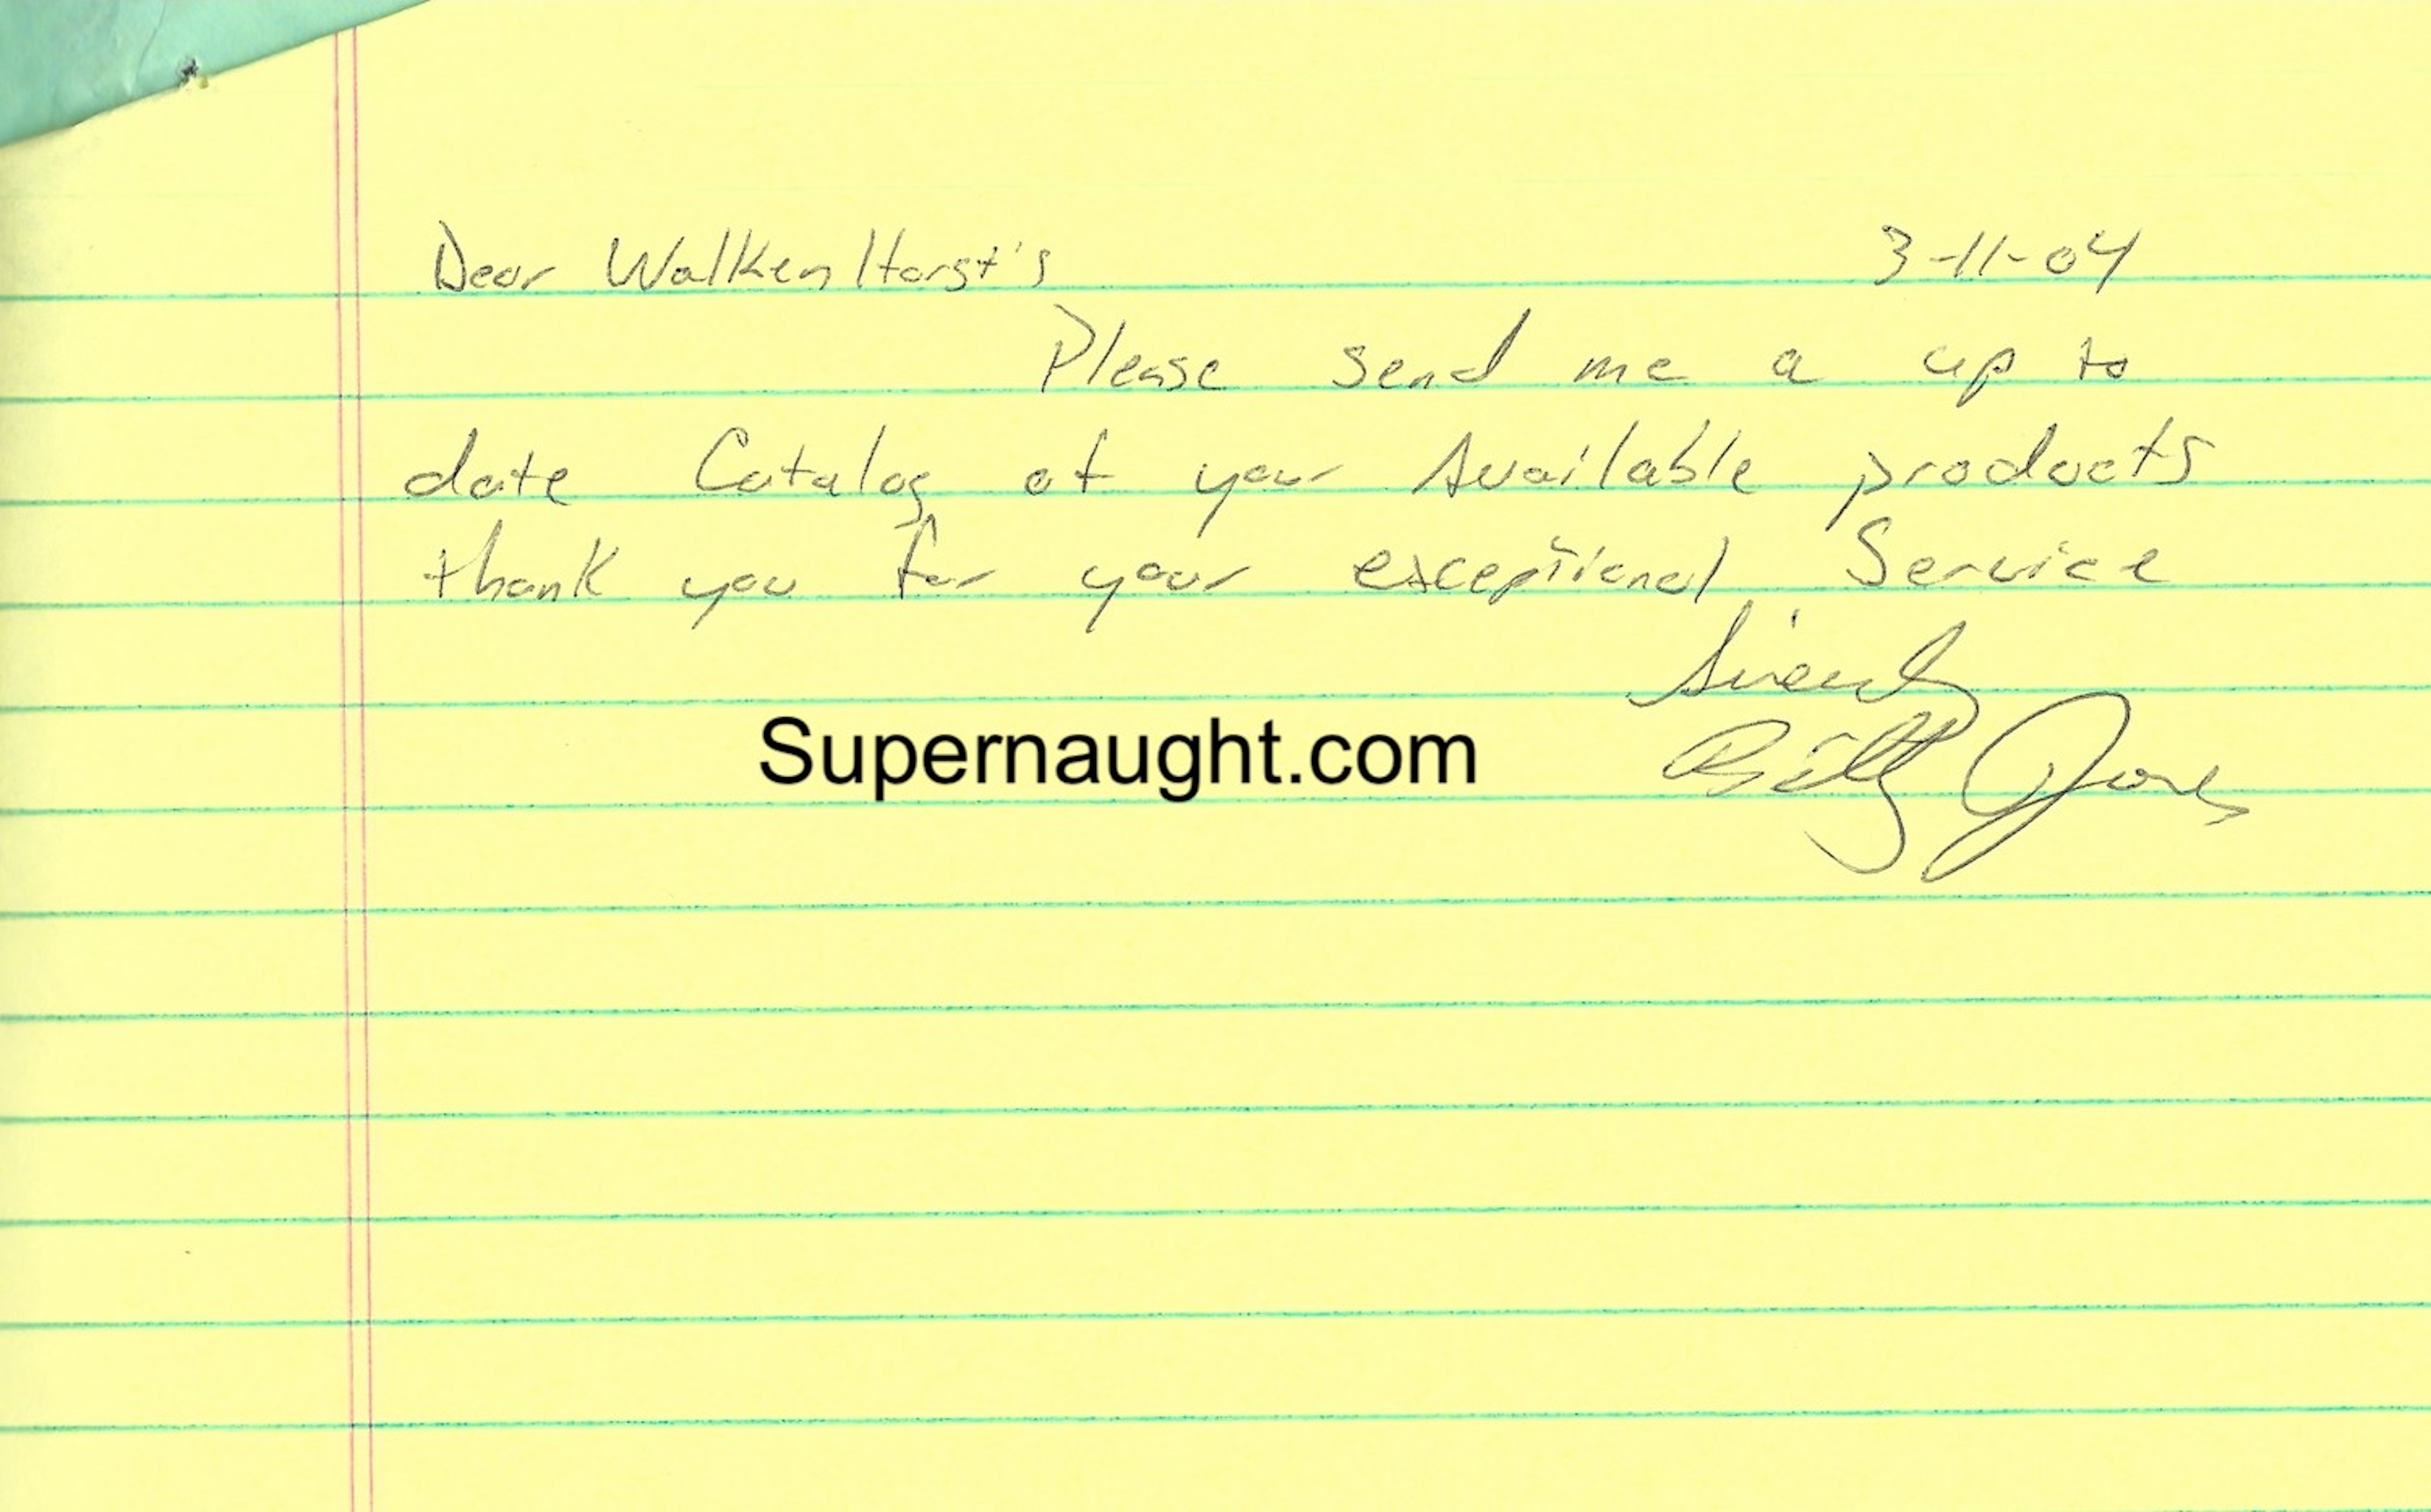 Dear WalkenHorst's 3-11-04
Please send me a up to
date Catalog of your Available products
thank you for your exceptional Service
Sincerely
Supernaught.com
Billy Jones